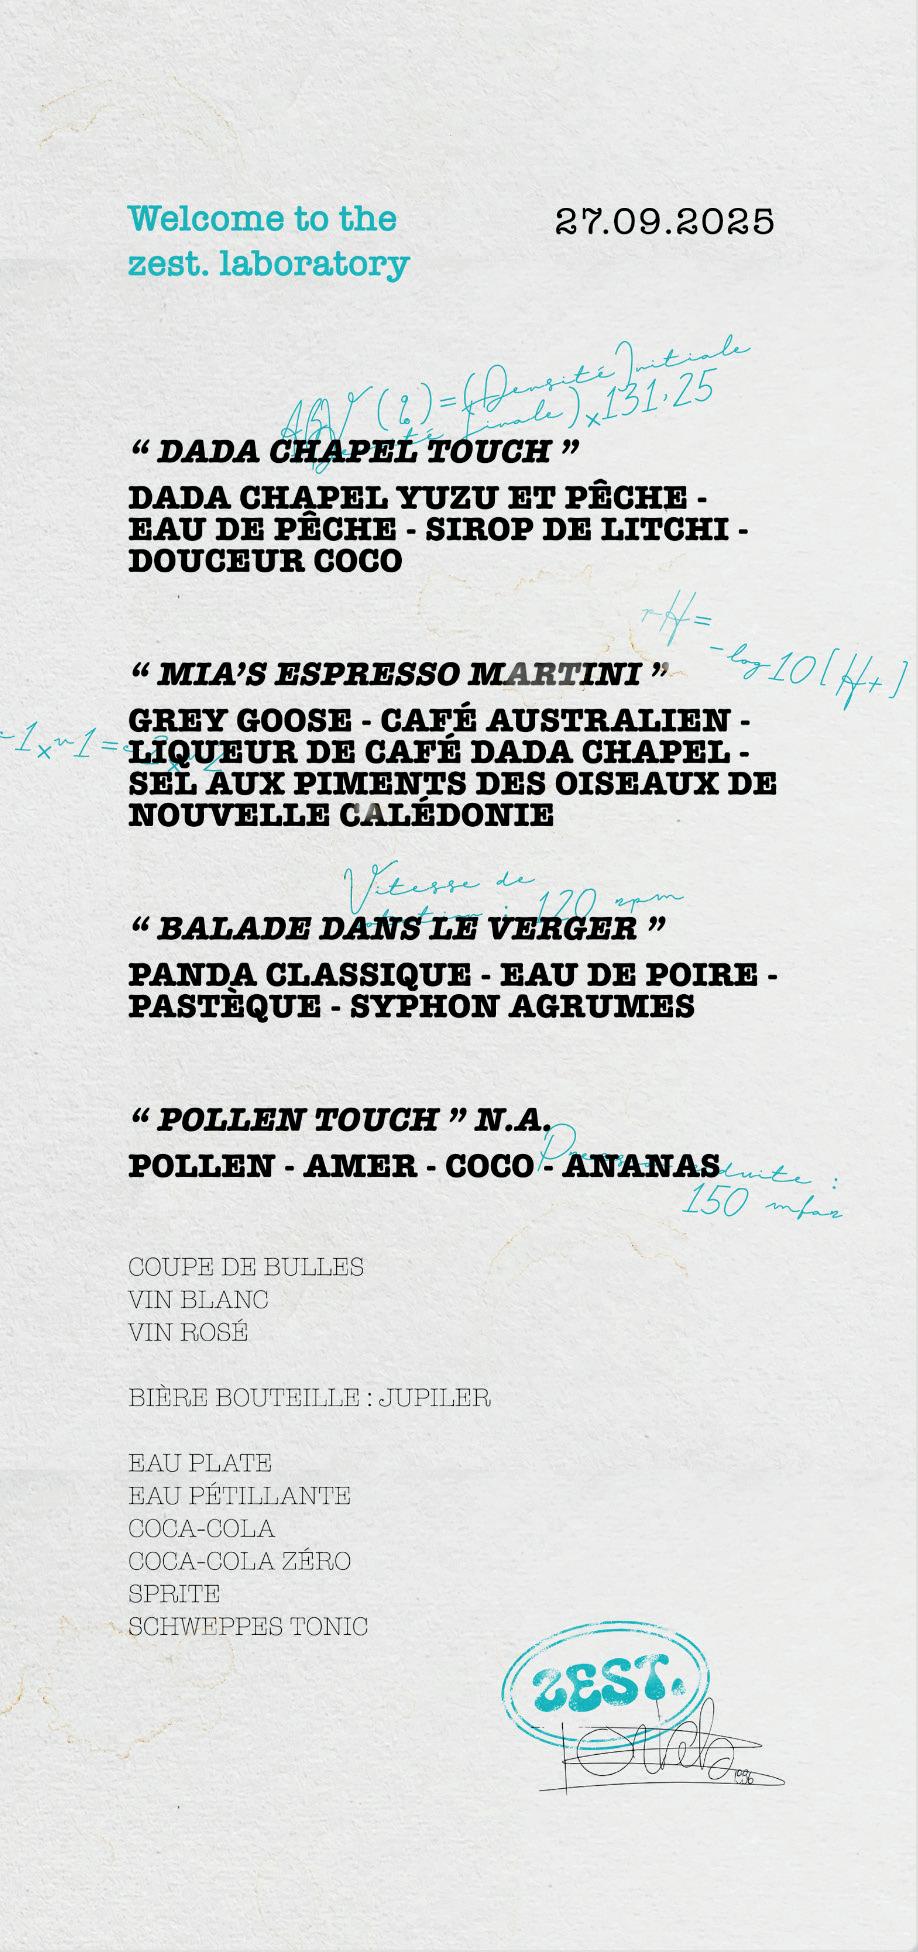 Welcome to the
zest. laboratory
27.09.2025
ABV (%) = (Densité Initiale
Densité finale) x131,25
“ DADA CHAPEL TOUCH ”
DADA CHAPEL YUZU ET PÊCHE -
EAU DE PÊCHE - SIROP DE LITCHI -
DOUCEUR COCO
pH =
-log10[H+]
“ MIA’S ESPRESSO MARTINI ”
GREY GOOSE - CAFÉ AUSTRALIEN -
LIQUEUR DE CAFÉ DADA CHAPEL -
SEL AUX PIMENTS DES OISEAUX DE
NOUVELLE CALÉDONIE
Vitesse de
: 120 rpm
“ BALADE DANS LE VERGER ”
PANDA CLASSIQUE - EAU DE POIRE -
PASTÈQUE - SYPHON AGRUMES
“ POLLEN TOUCH ” N.A.
POLLEN - AMER - COCO - ANANAS
:
150 mbar
COUPE DE BULLES
VIN BLANC
VIN ROSÉ
BIÈRE BOUTEILLE : JUPILER
EAU PLATE
EAU PÉTILLANTE
COCA-COLA
COCA-COLA ZÉRO
SPRITE
SCHWEPPES TONIC
ZEST.